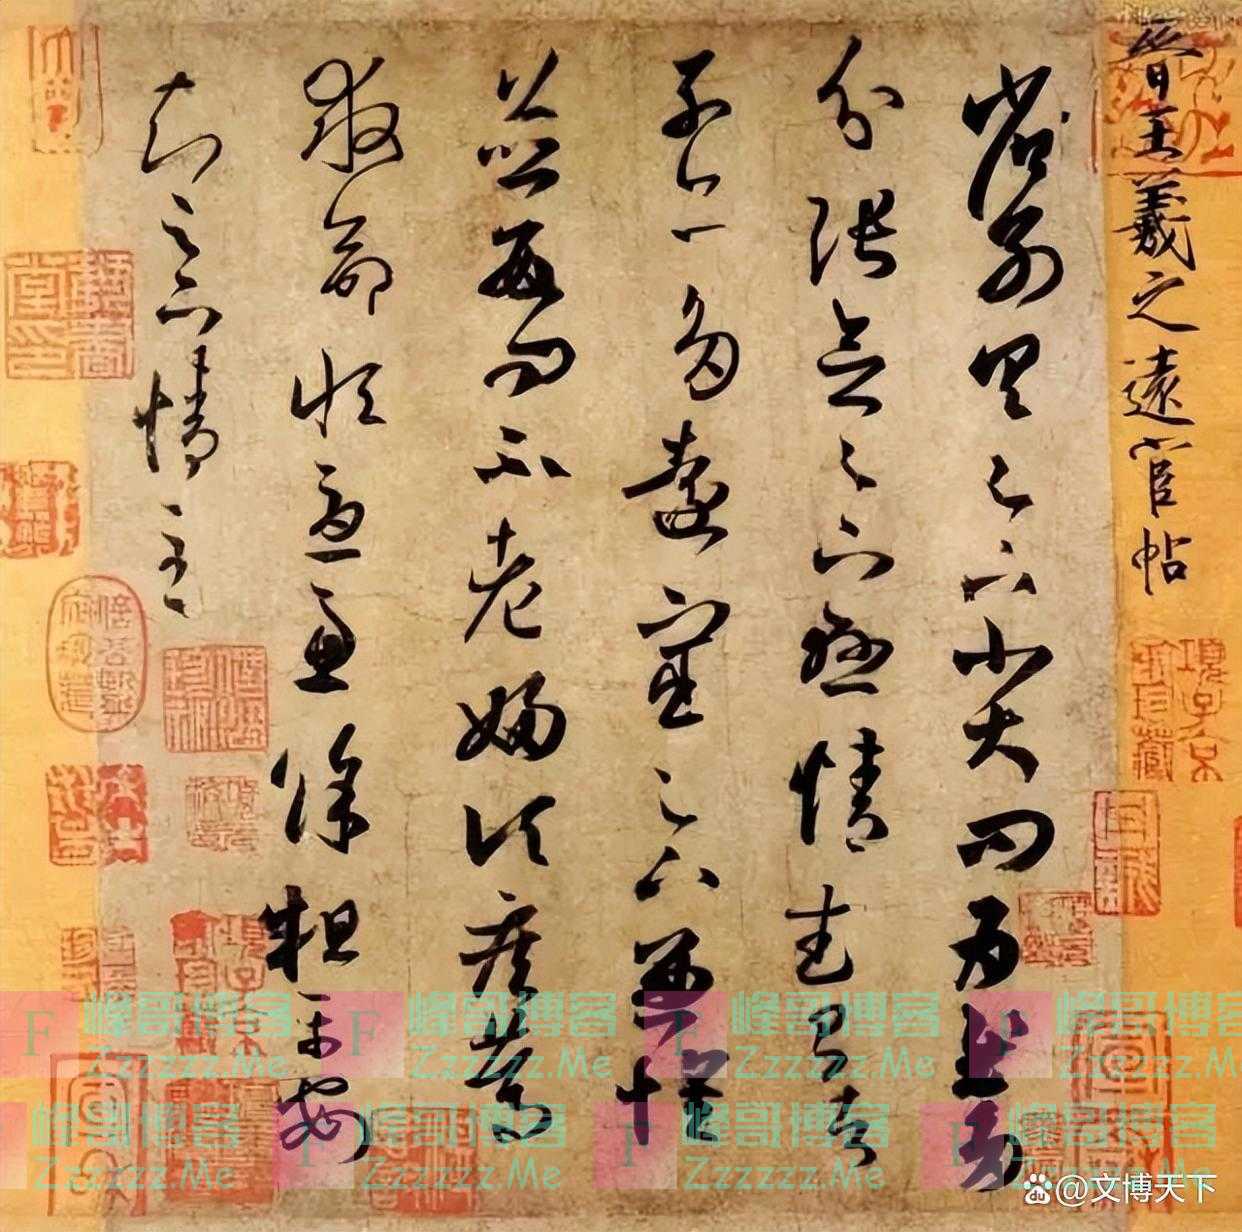 晉王羲之遠宦帖
省別具足下小大問為慰多
分張念足下懸情武昌諸
子亦多遠宦足下兼懷
並數問不老婦頃疾篤
救命恒憂慮餘粗平安
知足下情至
項子京家珍藏
F 峰哥博客 Zzzzzz.Me
F 峰哥博客 Zzzzzz.Me
F 峰哥博客 Zzzzzz.Me
F 峰哥博客 Zzzzzz.Me
F 峰哥博客 Zzzzzz.Me
F 峰哥博客 Zzzzzz.Me
F 峰哥博客 Zzzzzz.Me
F 峰哥博客 Zzzzzz.Me
@文博天下